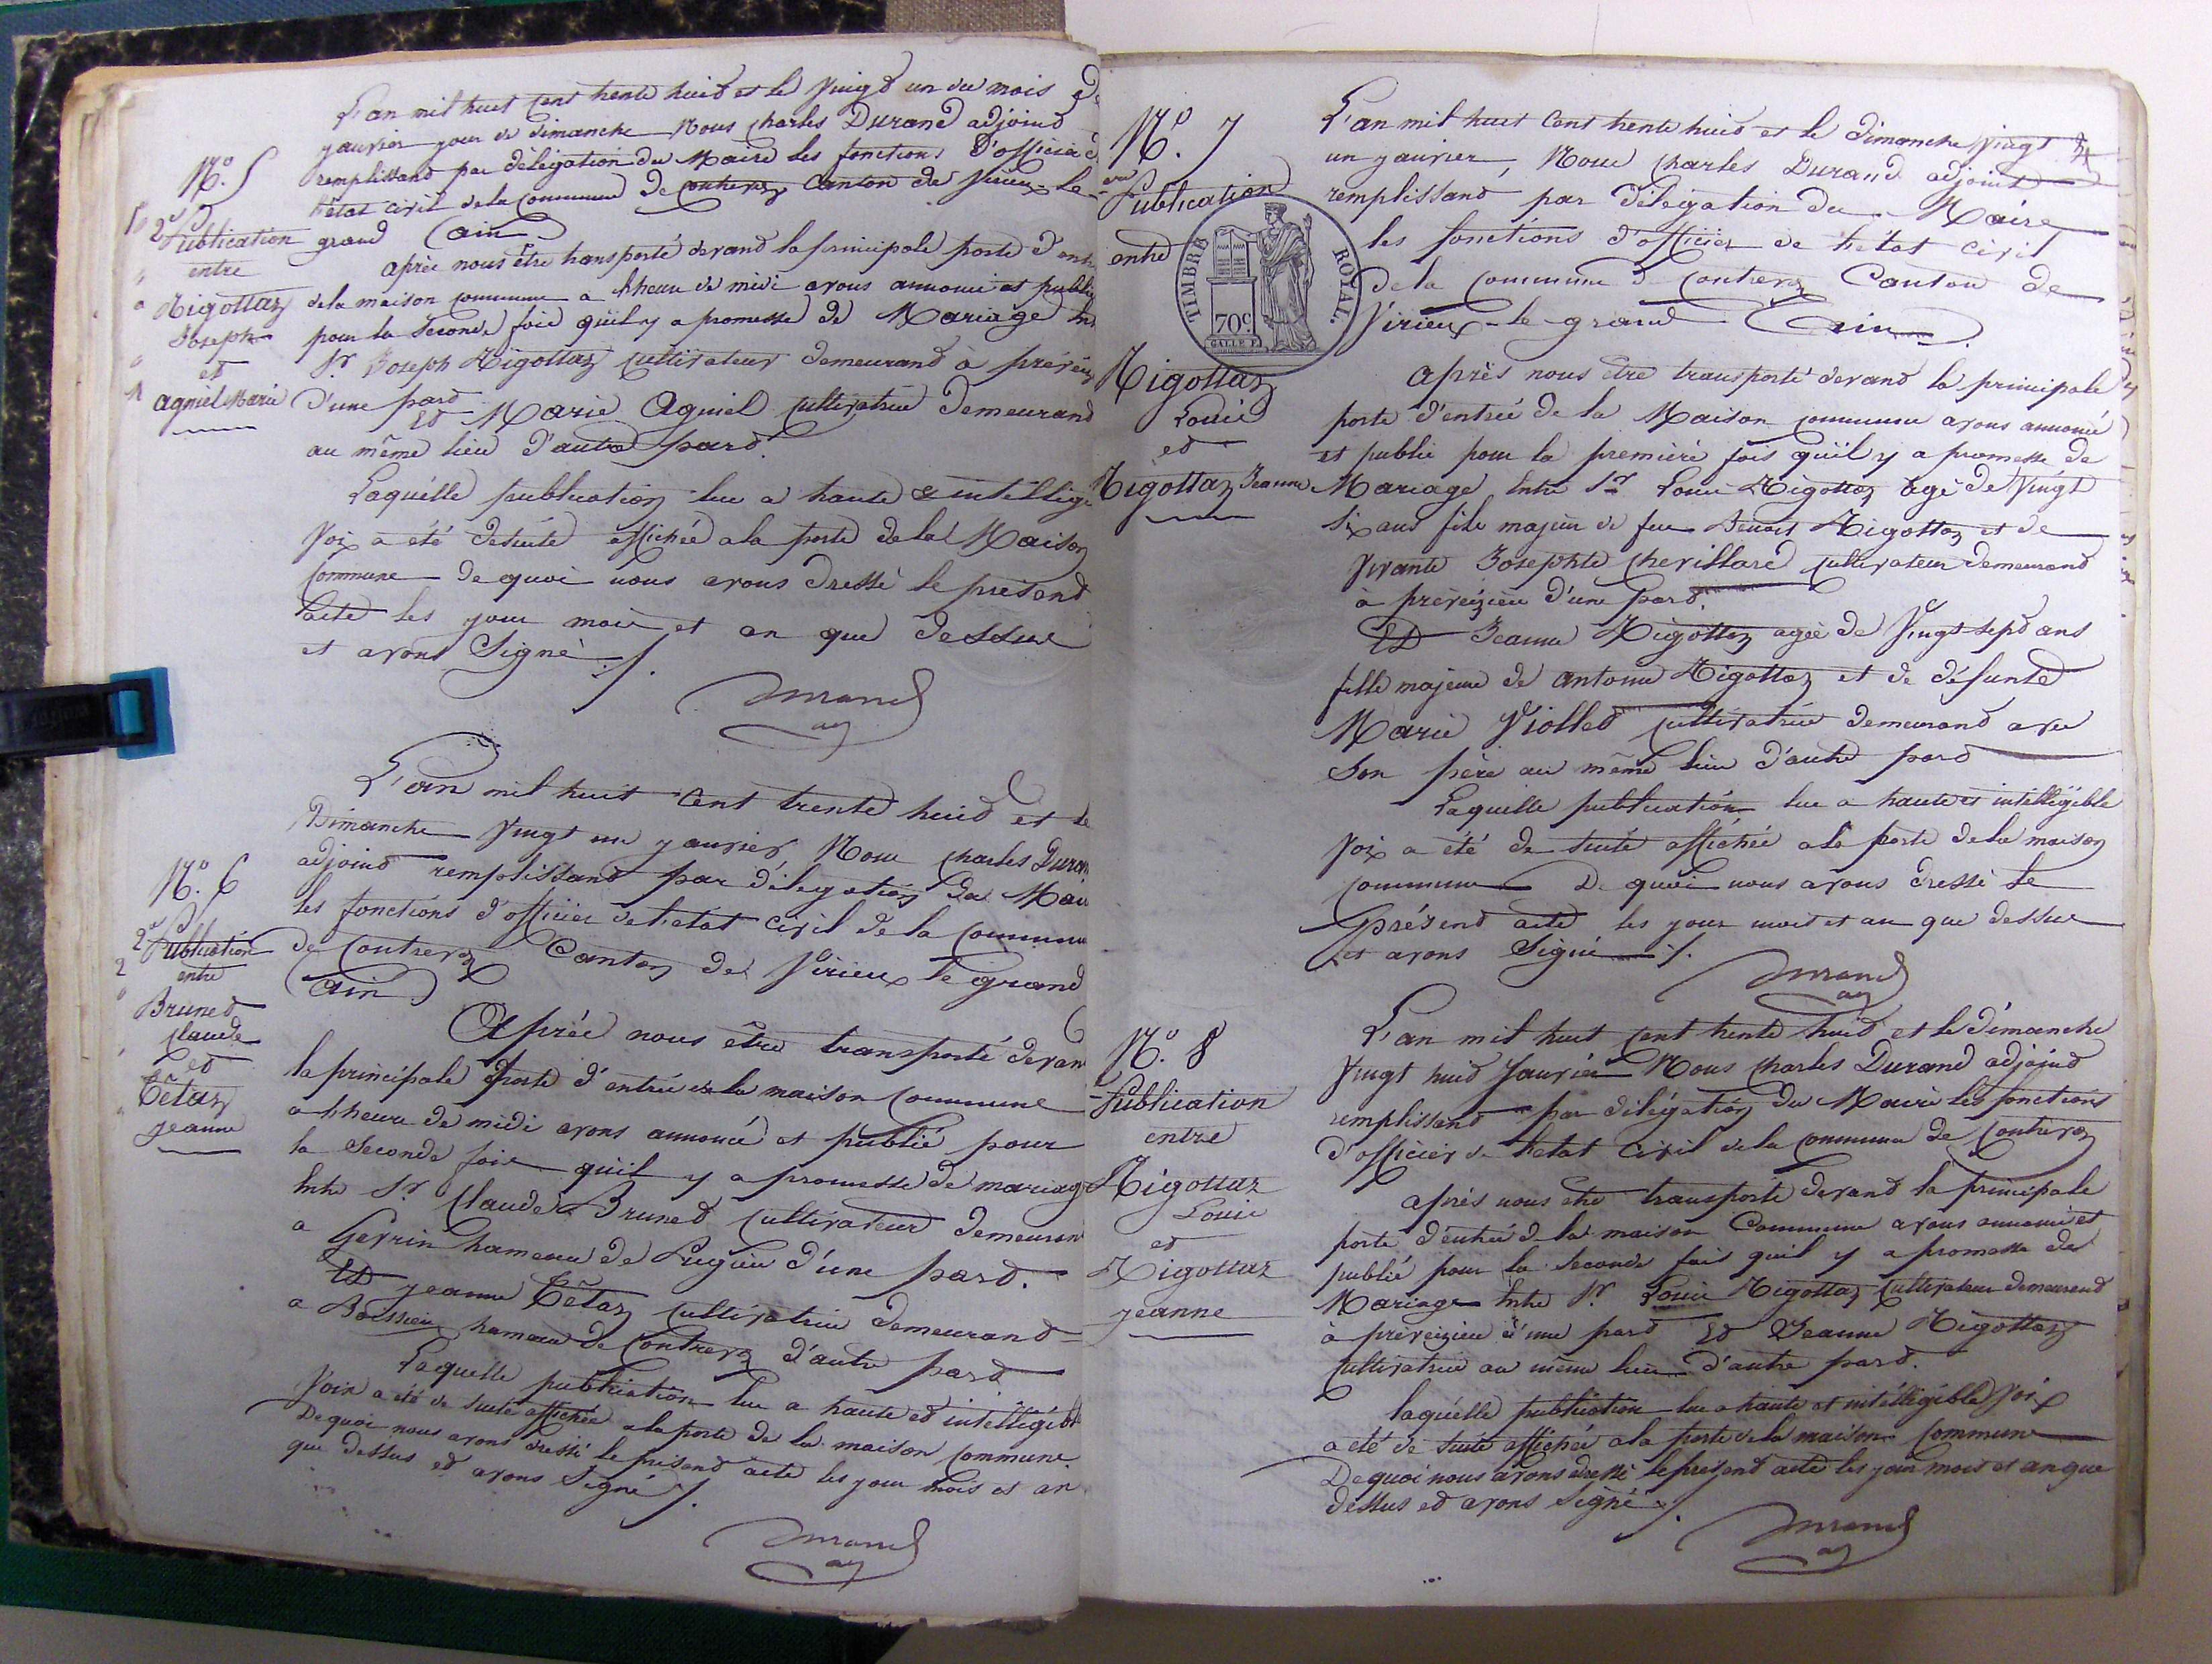 L'an mil huit cent trente huit et le vingt un du mois de
janvier jour de dimanche Nous Charles Durand adjoint
remplissant par délégation du Maire les fonctions d'officier d
l'état civil de la commune de Contrevoz Canton de Virieu-le-
grand (ain)
N.° 5
2.e Publication
entre
Rigottaz
Joseph
et
agniel Marie
après nous être transporté devant la principale porte d'ent
de la maison commune a l'heure de midi avons annoncé et publié
pour la seconde fois qu'il y a promesse de Mariage entr
S.r Joseph Rigottaz cultivateur demeurant à préveiz
d'une part
Et Marie Agniel cultivatrice demeurant
au même lieu d'autre part.
Laquelle publication lue a haute & intellige
voix a été desuite affichée a la porte de la Maison
Commune de quoi nous avons dressé le présent
acte les jour mois et an que dessus
et avons Signé ./.
Durand
adj
L'an mil huit cent trente huit et le
Dimanche vingt un janvier Nous Charles Duran
adjoint remplissant par délégation du Mair
les fonctions d'officier de l'état civil de la Commune
de Contrevoz Canton de Virieu le grand
(ain)
N.° 6
2.e Publication
entre
Brunet
Claude
et
Têtaz
jeanne
Après nous être transporté devan
la principale porte d'entrée de la maison Commune
a l'heure de midi avons annoncé et publié pour
la Seconde fois qu'il y a promesse de mariag
entre S.r Claude Brunet cultivateur demeuran
a Gevrin hameau de Pugieu d'une part.
Et jeanne Têtaz cultivatrice demeurant
a Boissieu hameau de Contrevoz d'autre part
Laquelle publication lue a haute et intelligibl
voix a été de suite affichée a la porte de la maison commune.
De quoi nous avons dressé le présent acte les jour mois et an
que dessus et avons Signé ./.
Durand
adj
N.° 7
1.ere Publication
entre
Rigottaz
Louis
et
Rigottaz Jeanne
TIMBRE ROYAL.
70c
GALLE F.
4
L'an mil huit Cent trente huit et le Dimanche vingt
un janvier, Nous Charles Durand adjoint
remplissant par délégation du Maire
les fonctions d'officier de l'état civil
de la commune d Contrevoz Canton de
Virieu-le-grand (ain)
Après nous être transporté devant la principale
porte d'entrée de la Maison commune avons annoncé
et publié pour la première fois qu'il y a promesse de
Mariage entre S.r Louis Rigottaz agé de vingt
six ans fils majeur de feu Benoit Rigottaz et de
vivante Josephte Chevillard cultivateur demeurant
à préveizieu d'une part.
Et Jeanne Rigottaz agée de vingt-sept ans
fille majeure de antoine Rigottaz et de défunte
Marie Viollet cultivatrice demeurant avec
Son père au même lieu d'autre part
Laquelle publication lue a haute et intelligible
voix a été de suite affichée a la porte de la maison
commune De quoi nous avons dressé le
présent acte les jour mois et an que dessus
et avons Signé ./.
Durand
adj
N.° 8
Publication
entre
Rigottaz
Louis
et
Rigottaz
jeanne
L'an mil huit cent trente huit et le dimanche
vingt huit Janvier Nous Charles Durand adjoint
remplissant par délégation du Maire les fonctions
d'officier de l'état civil de la commune de Contrevoz
après nous être transporté devant la principale
porte d'entrée de la maison Commune avons annoncé et
publié pour la seconde fois qu'il y a promesse de
Mariage entre S.r Louis Rigottaz Cultivateur demeurant
à préveizieu d'une part Et Jeanne Rigottaz
Cultivatrice au même lieu d'autre part.
laquelle publication lue a haute et intelligible voix
a été de suite affichée a la porte de la maison Commune
De quoi nous avons dressé le présent acte les jour mois et an que
dessus et avons signé ./.
Durand
adj